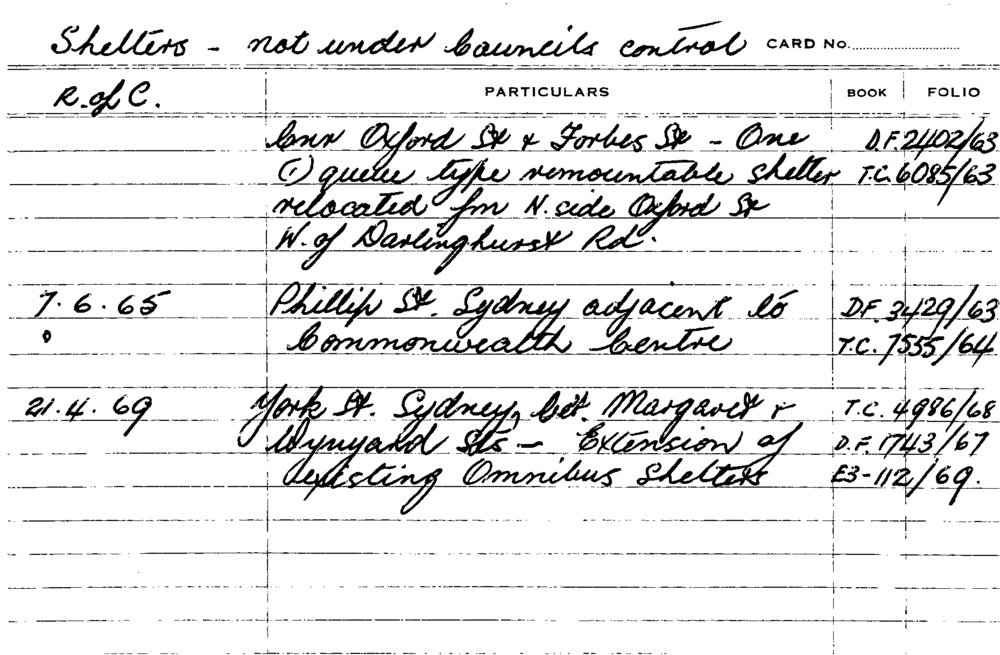 Shelters - not under Councils control CARD No.
R. of C. PARTICULARS BOOK FOLIO
Cnr Oxford St & Forbes St - One D.F. 2402/63
(1) queue type remountable shelter T.C. 6085/63
relocated fm N. side Oxford St
W. of Darlinghurst Rd.
7. 6. 65 Phillip St. Sydney adjacent to D.F. 3429/63
Commonwealth Centre T.C. 7555/64
21. 4. 69 York St. Sydney, bet. Margaret & T.C. 4986/68
Wynyard Sts - Extension of D.F. 1743/67
existing Omnibus Shelters E3-112/69.